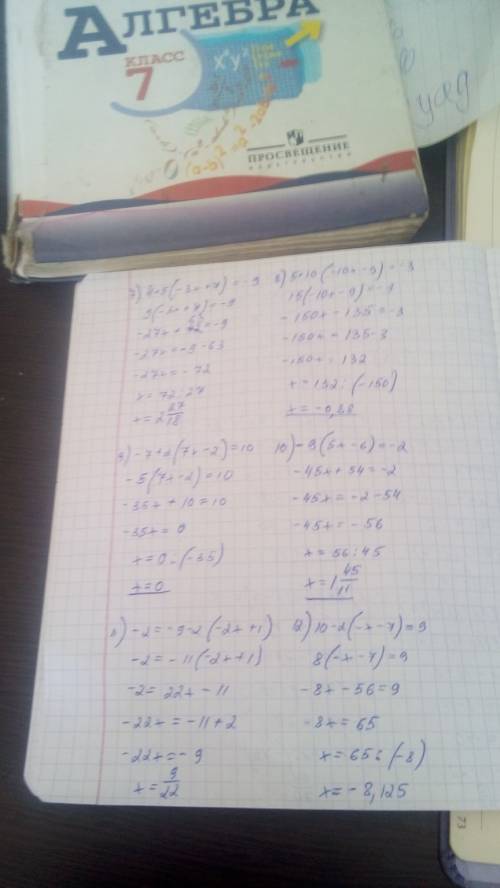 АЛГЕБРА
КЛАСС
7
ПРОСВЕЩЕНИЕ
7) 4+5(-3x+7)=-9
9(-3x+7)=-9
-27x+63=-9
-27x=-9-63
-27x=-72
x=72:27
x=2 27/18
8) 5+10(-10x-9)=-3
15(-10x-9)=-3
-150x-135=-3
-150x=135-3
-150x=132
x=132:(-150)
x=-0,88
9) -7+2(7x-2)=10
-5(7x-2)=10
-35x+10=10
-35x=0
x=0:(-35)
x=0
10) -9(5x-6)=-2
-45x+54=-2
-45x=-2-54
-45x=-56
x=56:45
x=1 45/11
11) -2=-9-2(-2x+1)
-2=-11(-2x+1)
-2=22x-11
-22x=-11+2
-22x=-9
x=9/22
12) 10-2(-x-7)=9
8(-x-7)=9
-8x-56=9
-8x=65
x=65:(-8)
x=-8,125
73